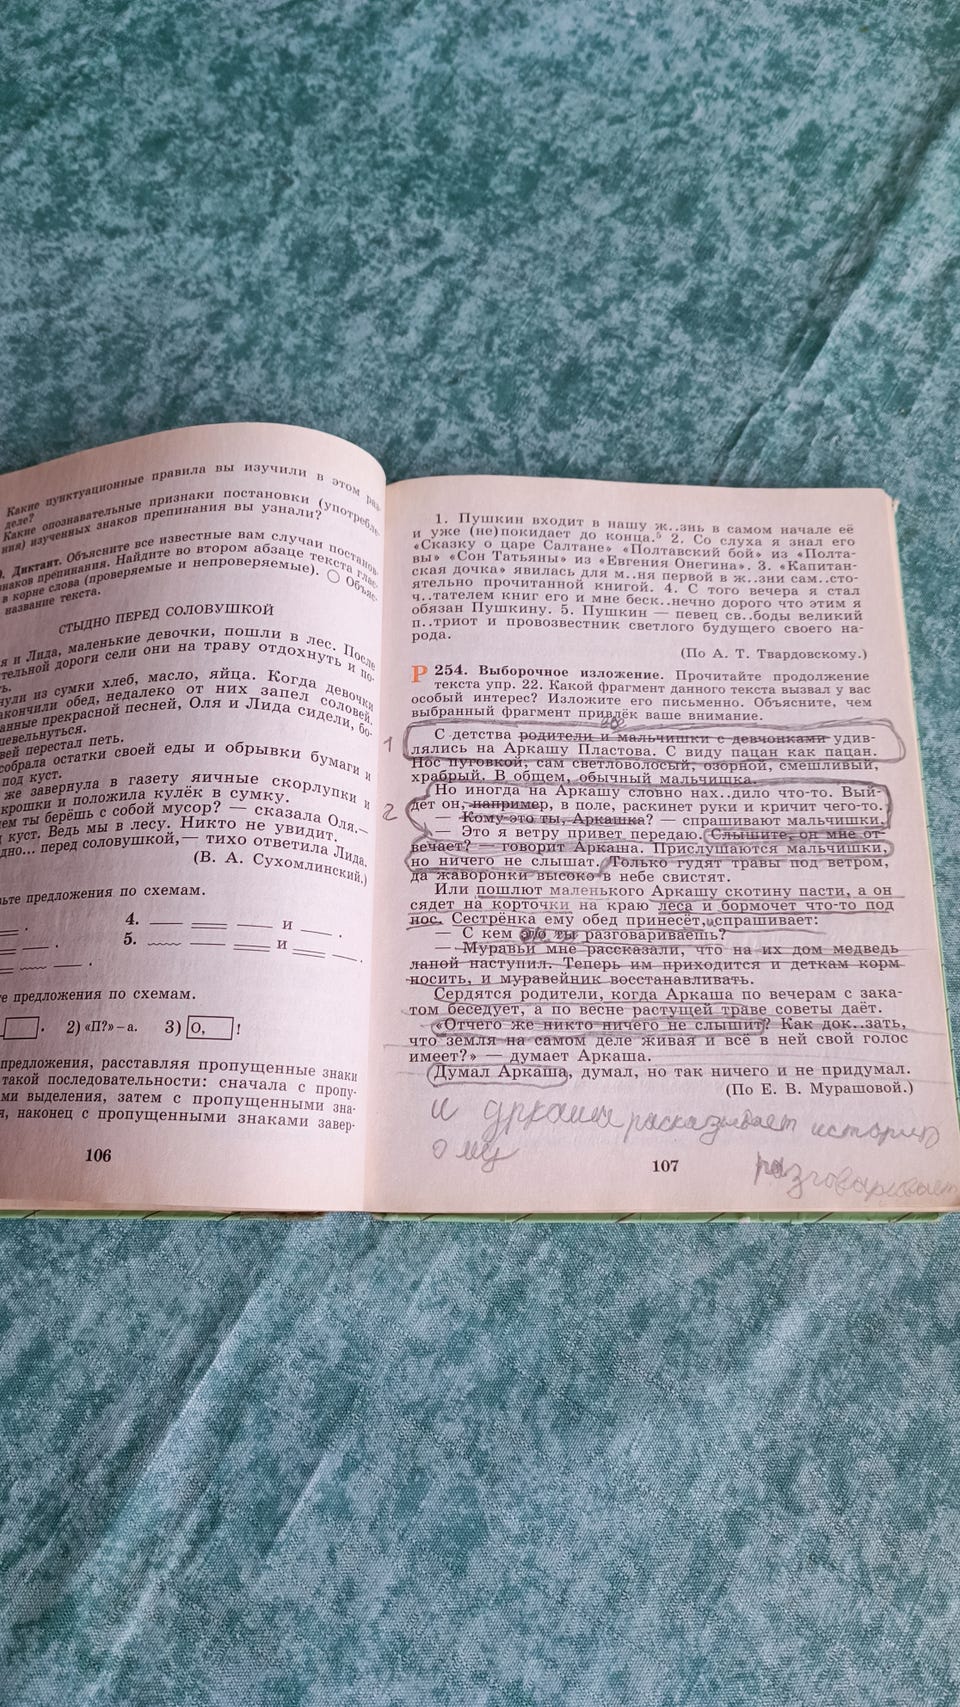 Какие пунктуационные правила вы изучили в этом раз-
деле?
Какие опознавательные признаки постановки (употребле-
ния) изученных знаков препинания вы узнали?
Диктант. Объясните все известные вам случаи постанов-
знаков препинания. Найдите во втором абзаце текста
в корне слова (проверяемые и непроверяемые). Объяс-
название текста.
СТЫДНО ПЕРЕД СОЛОВУШКОЙ
я и Лида, маленькие девочки, пошли в лес. После
тельной дороги сели они на траву отдохнуть и по-
ь.
нули из сумки хлеб, масло, яйца. Когда девочки
акончили обед, недалеко от них запел соловей.
анные прекрасной песней, Оля и Лида сидели, бо-
шевельнуться.
вей перестал петь.
собрала остатки своей еды и обрывки бумаги и
под куст.
же завернула в газету яичные скорлупки и
крошки и положила кулёк в сумку.
чем ты берёшь с собой мусор? — сказала Оля.—
куст. Ведь мы в лесу. Никто не увидит.
дно... перед соловушкой,— тихо ответила Лида.
(В. А. Сухомлинский.)
вьте предложения по схемам.
4. и .
5. и .
те предложения по схемам.
. 2) «П?» – а. 3) О, !
предложения, расставляя пропущенные знаки
такой последовательности: сначала с пропу-
ми выделения, затем с пропущенными зна-
я, наконец с пропущенными знаками завер-
106
1. Пушкин входит в нашу ж..знь в самом начале её
и уже (не)покидает до конца.⁵ 2. Со слуха я знал его
«Сказку о царе Салтане» «Полтавский бой» из «Полта-
вы» «Сон Татьяны» из «Евгения Онегина». 3. «Капитан-
ская дочка» явилась для м..ня первой в ж..зни сам..сто-
ятельно прочитанной книгой. 4. С того вечера я стал
ч..тателем книг его и мне беск..нечно дорого что этим я
обязан Пушкину. 5. Пушкин — певец св..боды великий
п..триот и провозвестник светлого будущего своего на-
рода.
(По А. Т. Твардовскому.)
Р 254. Выборочное изложение. Прочитайте продолжение
текста упр. 22. Какой фрагмент данного текста вызвал у вас
особый интерес? Изложите его письменно. Объясните, чем
выбранный фрагмент привлёк ваше внимание.
1 С детства родители и мальчишки с девчонками удив-
лялись на Аркашу Пластова. С виду пацан как пацан.
Нос пуговкой, сам светловолосый, озорной, смешливый,
храбрый. В общем, обычный мальчишка.
Но иногда на Аркашу словно нах..дило что-то. Вый-
дет он, например, в поле, раскинет руки и кричит чего-то.
2 — Кому это ты, Аркашка? — спрашивают мальчишки.
— Это я ветру привет передаю. Слышите, он мне от-
вечает? — говорит Аркаша. Прислушаются мальчишки,
но ничего не слышат. Только гудят травы под ветром,
да жаворонки высоко в небе свистят.
Или пошлют маленького Аркашу скотину пасти, а он
сядет на корточки на краю леса и бормочет что-то под
нос. Сестрёнка ему обед принесёт, спрашивает:
— С кем это ты разговариваешь?
— Муравьи мне рассказали, что на их дом медведь
лапой наступил. Теперь им приходится и деткам корм
носить, и муравейник восстанавливать.
Сердятся родители, когда Аркаша по вечерам с зака-
том беседует, а по весне растущей траве советы даёт.
«Отчего же никто ничего не слышит? Как док..зать,
что земля на самом деле живая и всё в ней свой голос
имеет?» — думает Аркаша.
Думал Аркаша, думал, но так ничего и не придумал.
(По Е. В. Мурашовой.)
и аркаша расказывает историю
разговаривает
107